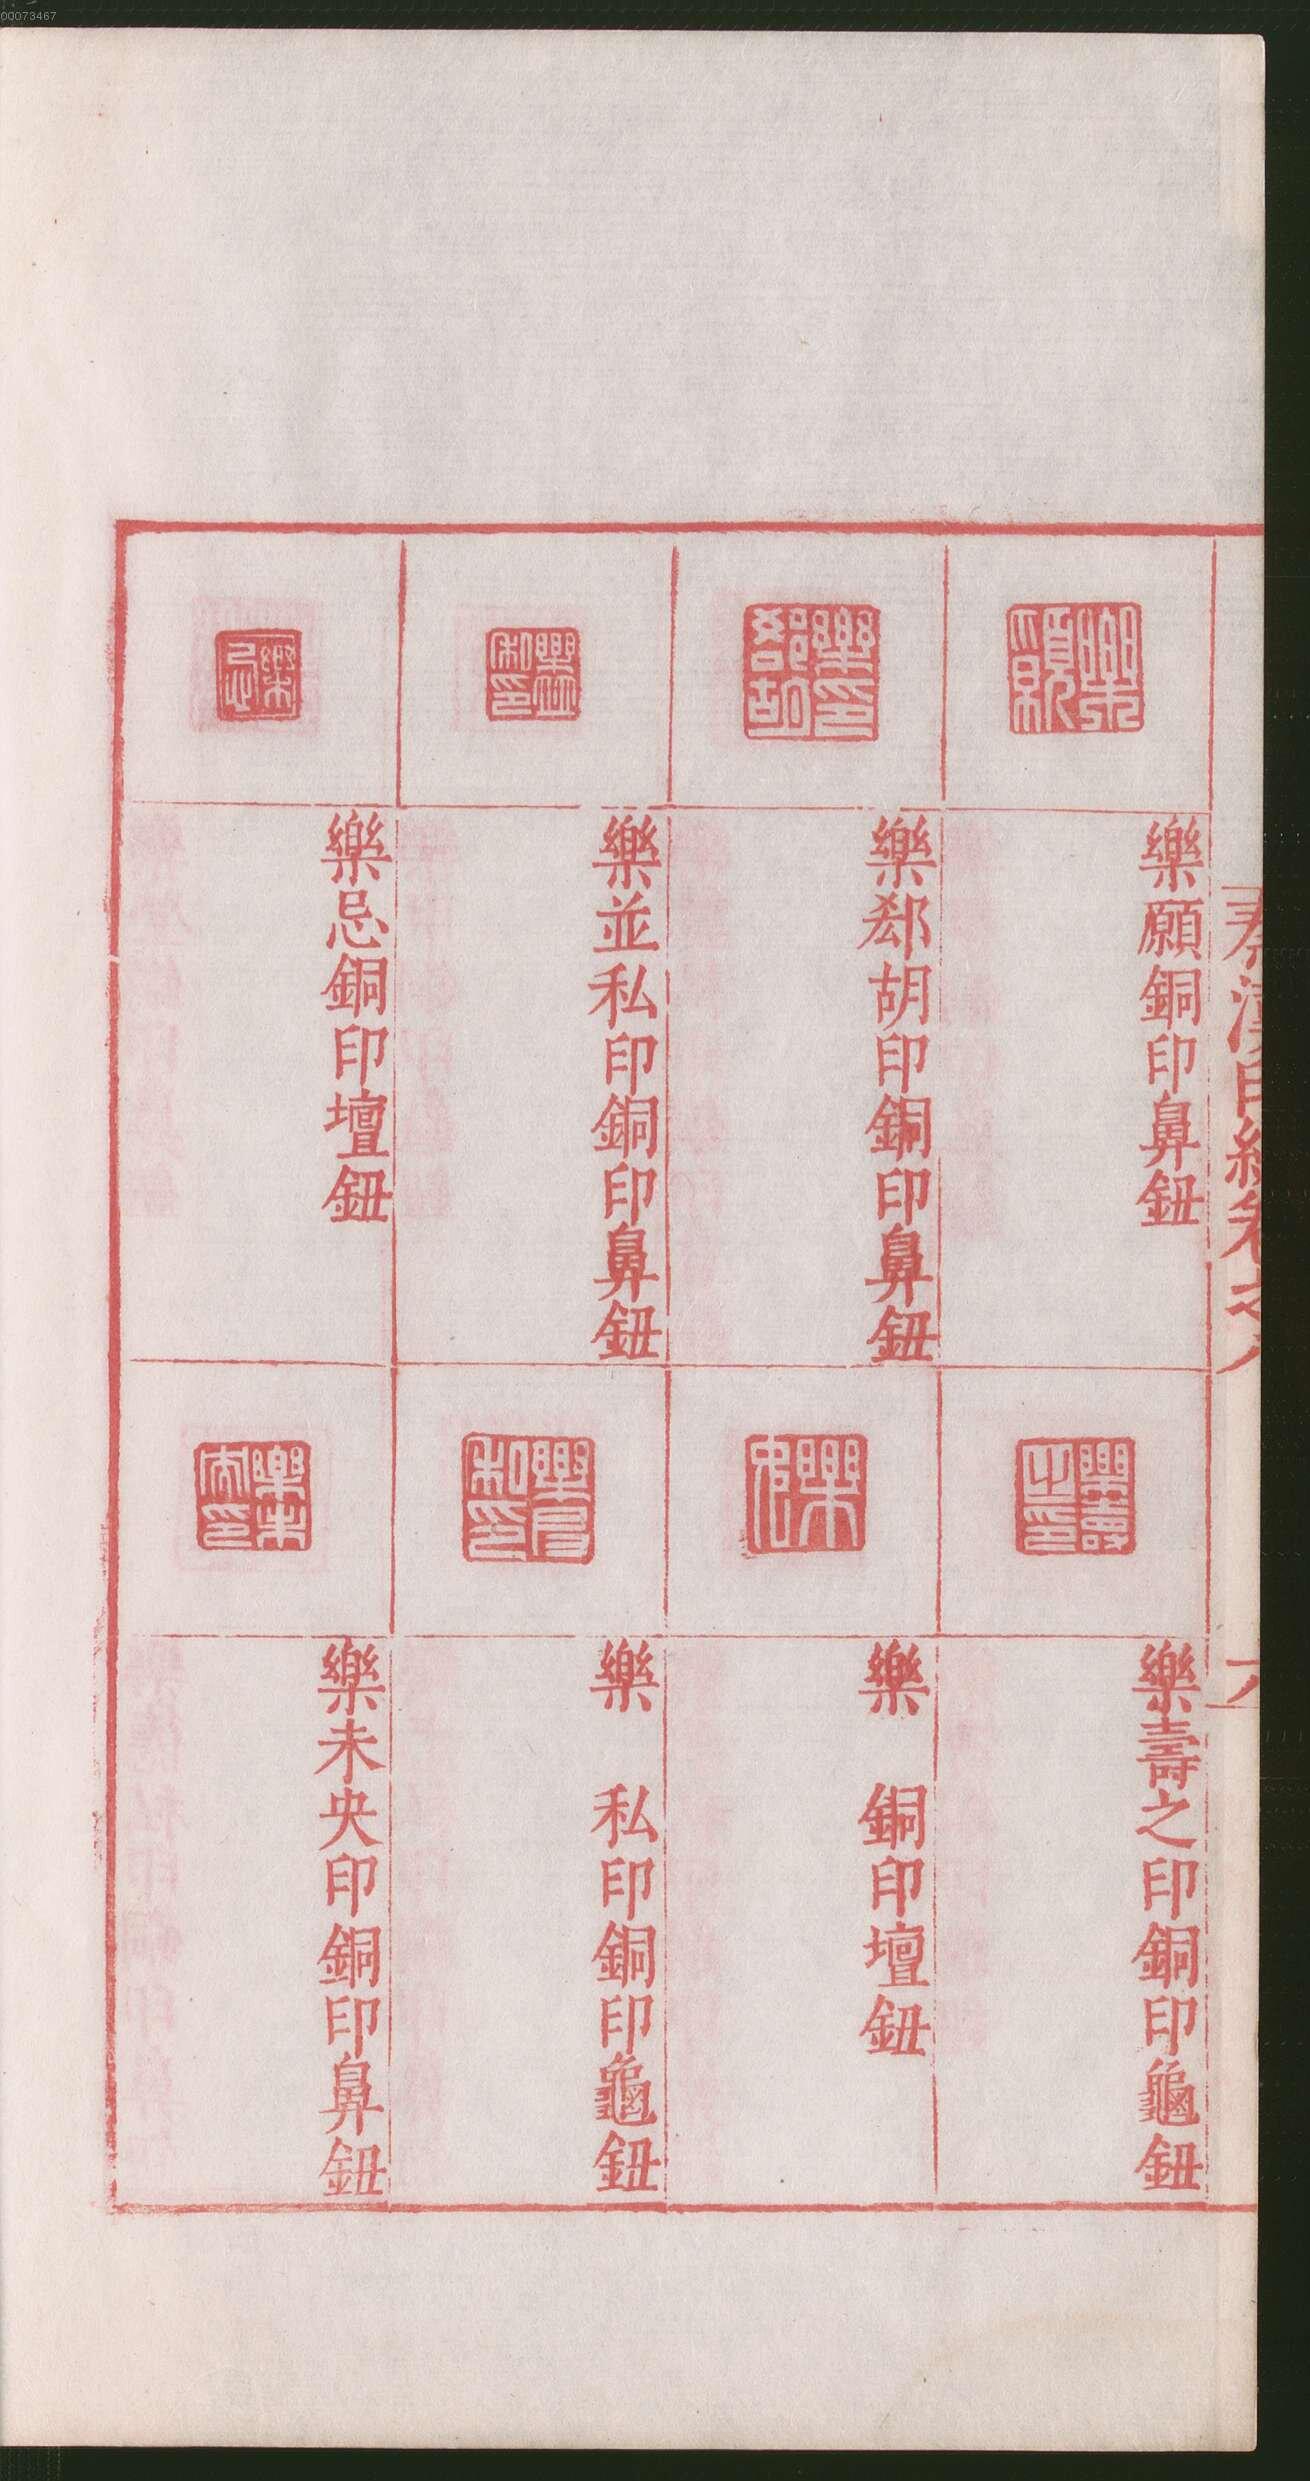 00073467
秦漢印統卷之八
六
樂願銅印鼻鈕
樂郄胡印銅印鼻鈕
樂並私印銅印鼻鈕
樂忌銅印壇鈕
樂壽之印銅印龜鈕
樂　銅印壇鈕
樂　私印銅印龜鈕
樂未央印銅印鼻鈕